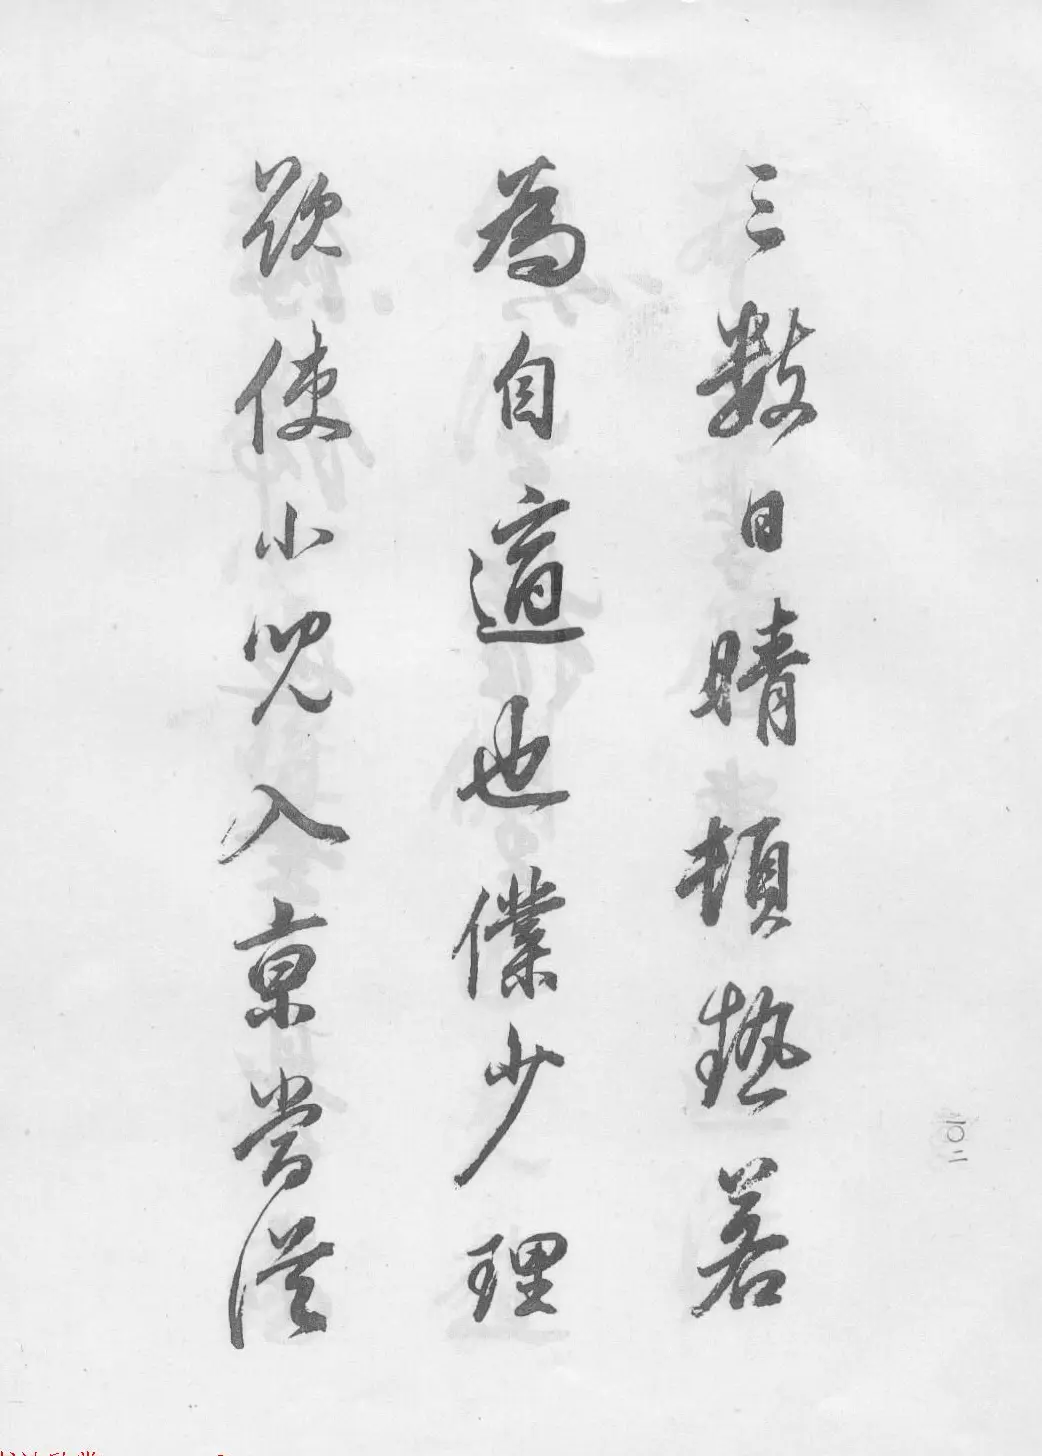 三數日晴頓熱若
為自適也僕少理
欲使小兒入京當從
一〇二